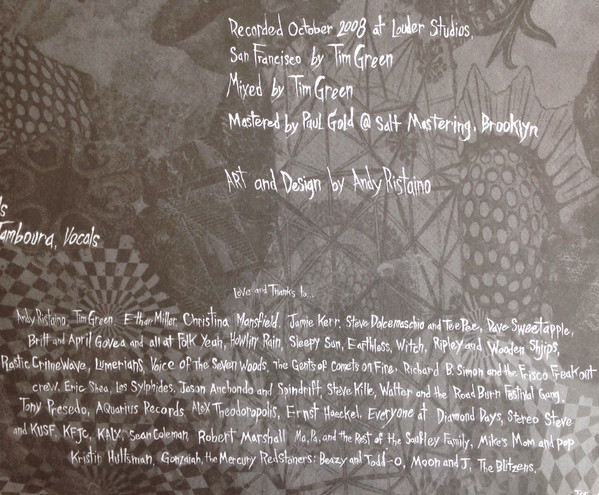 Recorded October 2008 at Louder Studios,
San Francisco by Tim Green
Mixed by Tim Green
Mastered by Paul Gold @ Salt Mastering, Brooklyn
Art and Design by Andy Ristaino
ls
Tamboura, Vocals
Love and Thanks to...
Andy Ristaino, Tim Green, Ethan Miller, Christina Mansfield, Jamie Kerr, Steve Dolcemaschio and Tee Pee, Dave Sweetapple,
Britt and April Govea and all at Folk Yeah, Howlin Rain, Sleepy Sun, Earthless, Witch, Ripley and Wooden Shjips,
Plastic Crimewave, Lumerians, Voice of the Seven Woods, the Gents of Comets on Fire, Richard B. Simon and the Frisco Freakout
crew, Eric Shea, Los Sylphides, Jasan Anchondo and Spindrift, Steve Kille, Walter and the Road Burn Festival Gang,
Tony Presedo, Aquarius Records, Alex Theodoropolis, Ernst Haeckel, Everyone at Diamond Days, Stereo Steve
and KUSF, KFJC, KALX, Sean Coleman, Robert Marshall Ma, Pa, and the Rest of the Saufley Family, Mike's Mom and Pop
Kristin Hultsman, the Mercury Redstoners: Beazy and Todd-O, Moon and J, The Blitzens,